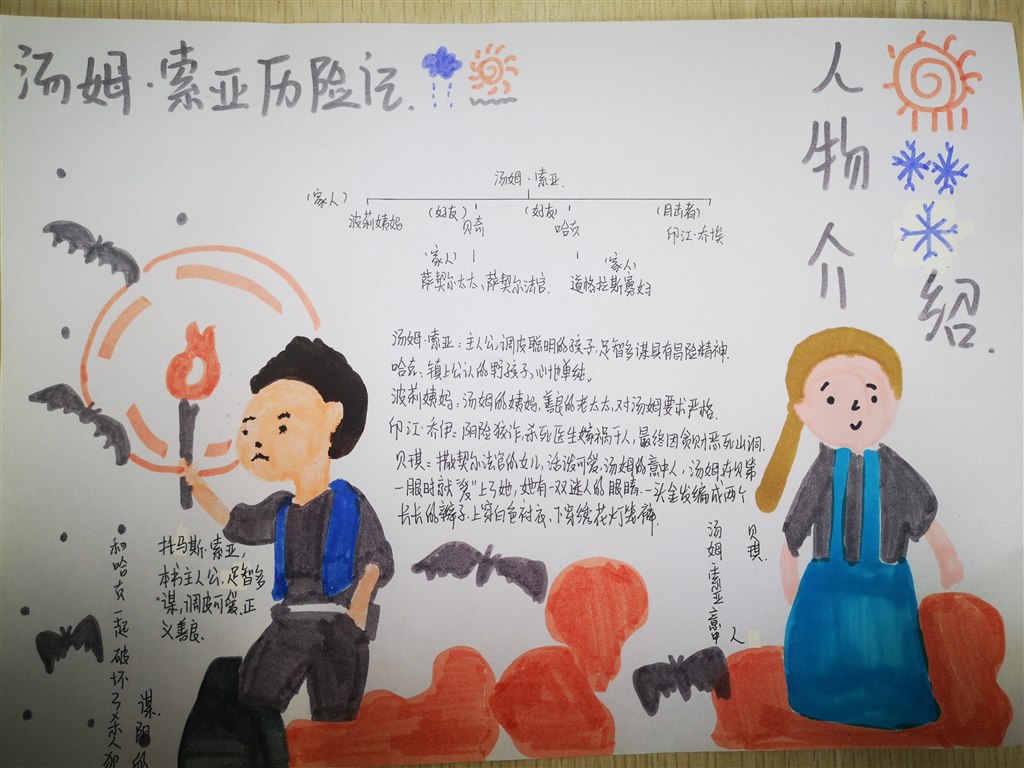 汤姆·索亚历险记.
人物介绍.
汤姆·索亚.
(家人) (好友) (好友) (目击者)
波莉姨妈 贝奇 哈克 印江·乔埃
(家人) (家人)
萨契尔太太、萨契尔法官. 道格拉斯寡妇
汤姆·索亚:主人公,调皮聪明的孩子,足智多谋具有冒险精神.
哈克:镇上公认的野孩子,心地单纯。
波莉姨妈:汤姆的姨妈,善良的老太太,对汤姆要求严格.
印江·乔伊:阴险狡诈,杀死医生嫁祸于人,最终因贪财恶死山洞.
贝琪:撒契尔法官的女儿,活泼可爱.汤姆的意中人,汤姆在见第
一眼时就"爱"上了她,她有一双迷人的眼睛.一头金发编成两个
长长的辫子.上穿白色衬衣,下穿绣花灯笼裤.
托马斯·索亚,
本书主人公,足智多
谋,调皮可爱.正
义善良.
和哈克一起破坏了杀人犯
谋
贝琪.
汤姆·索亚意中人